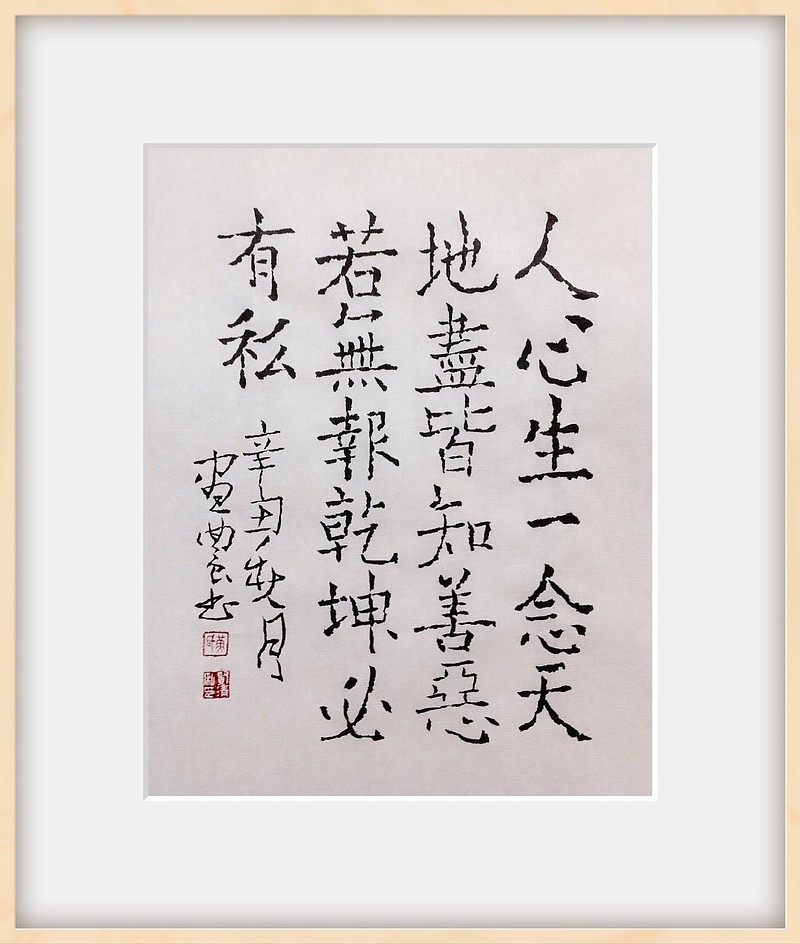 人心生一念天
地盡皆知善惡
若無報乾坤必
有私
辛丑月
書